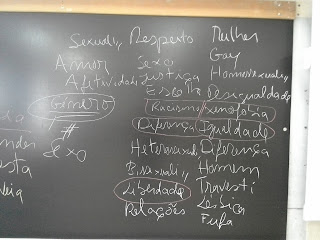 Sexuali,, Respeito Mulher
Amor Sexo Gay
Afetividade Justiça Homossexuali,,
Escolha Desigualdade
Gênero Racismo Xenofobia
≠ Diferença Igualdade
Sexo Heterossexual Diferença
Bissexuali,, Homem
Liberdade Travesti
Relações Lésbica